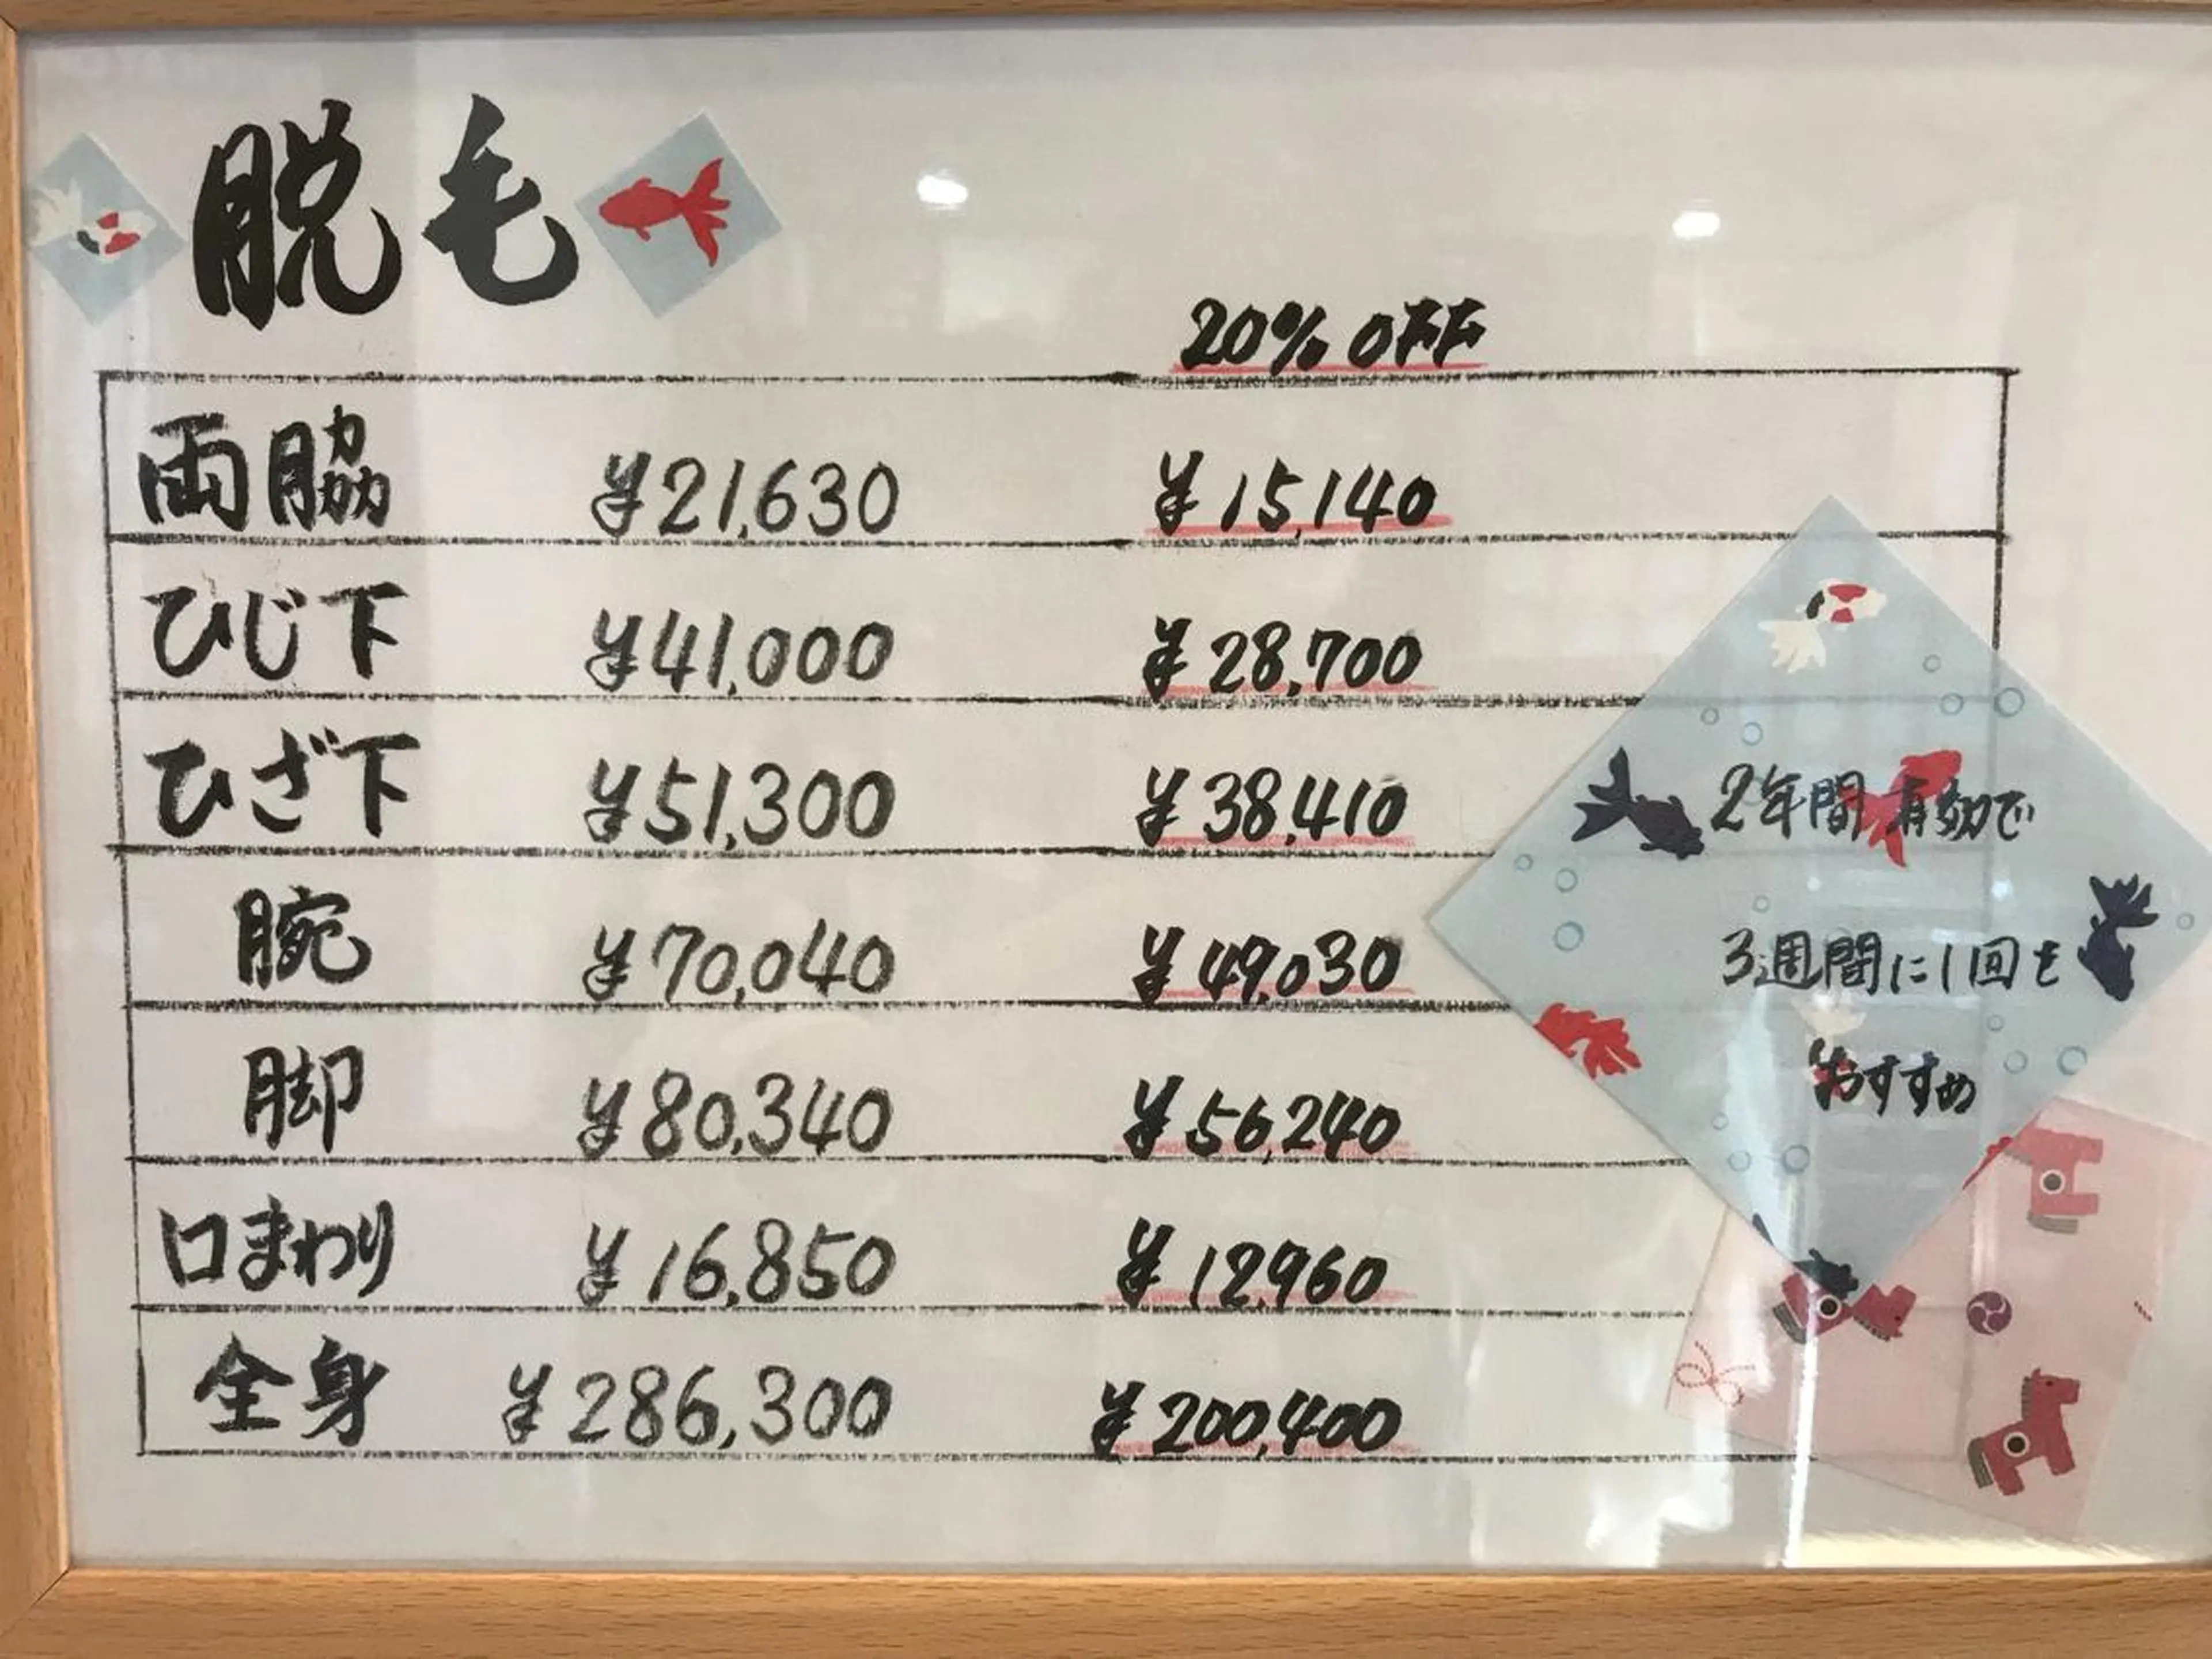 脱毛
20% OFF
両脇 ¥21,630 ¥15,140
ひじ下 ¥41,000 ¥28,700
ひざ下 ¥51,300 ¥38,410
腕 ¥70,040 ¥49,030
脚 ¥80,340 ¥56,240
口まわり ¥16,850 ¥12,960
全身 ¥286,300 ¥200,400
2年間有効で
3週間に1回を
おすすめ